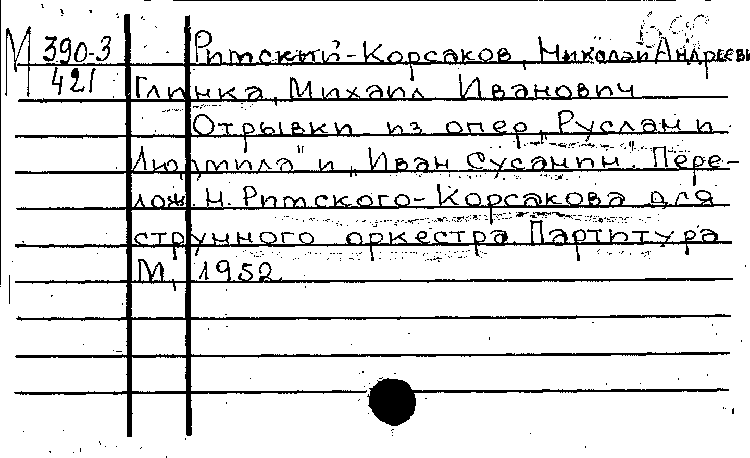 М 390-3 Римский-Корсаков, Николай Андрееви
421 Глинка, Михаил Иванович
Отрывки из опер „Руслан и
Людмила" и „Иван Сусанин". Пере-
лож. Н. Римского-Корсакова для
струнного оркестра. Партитура
М, 1952